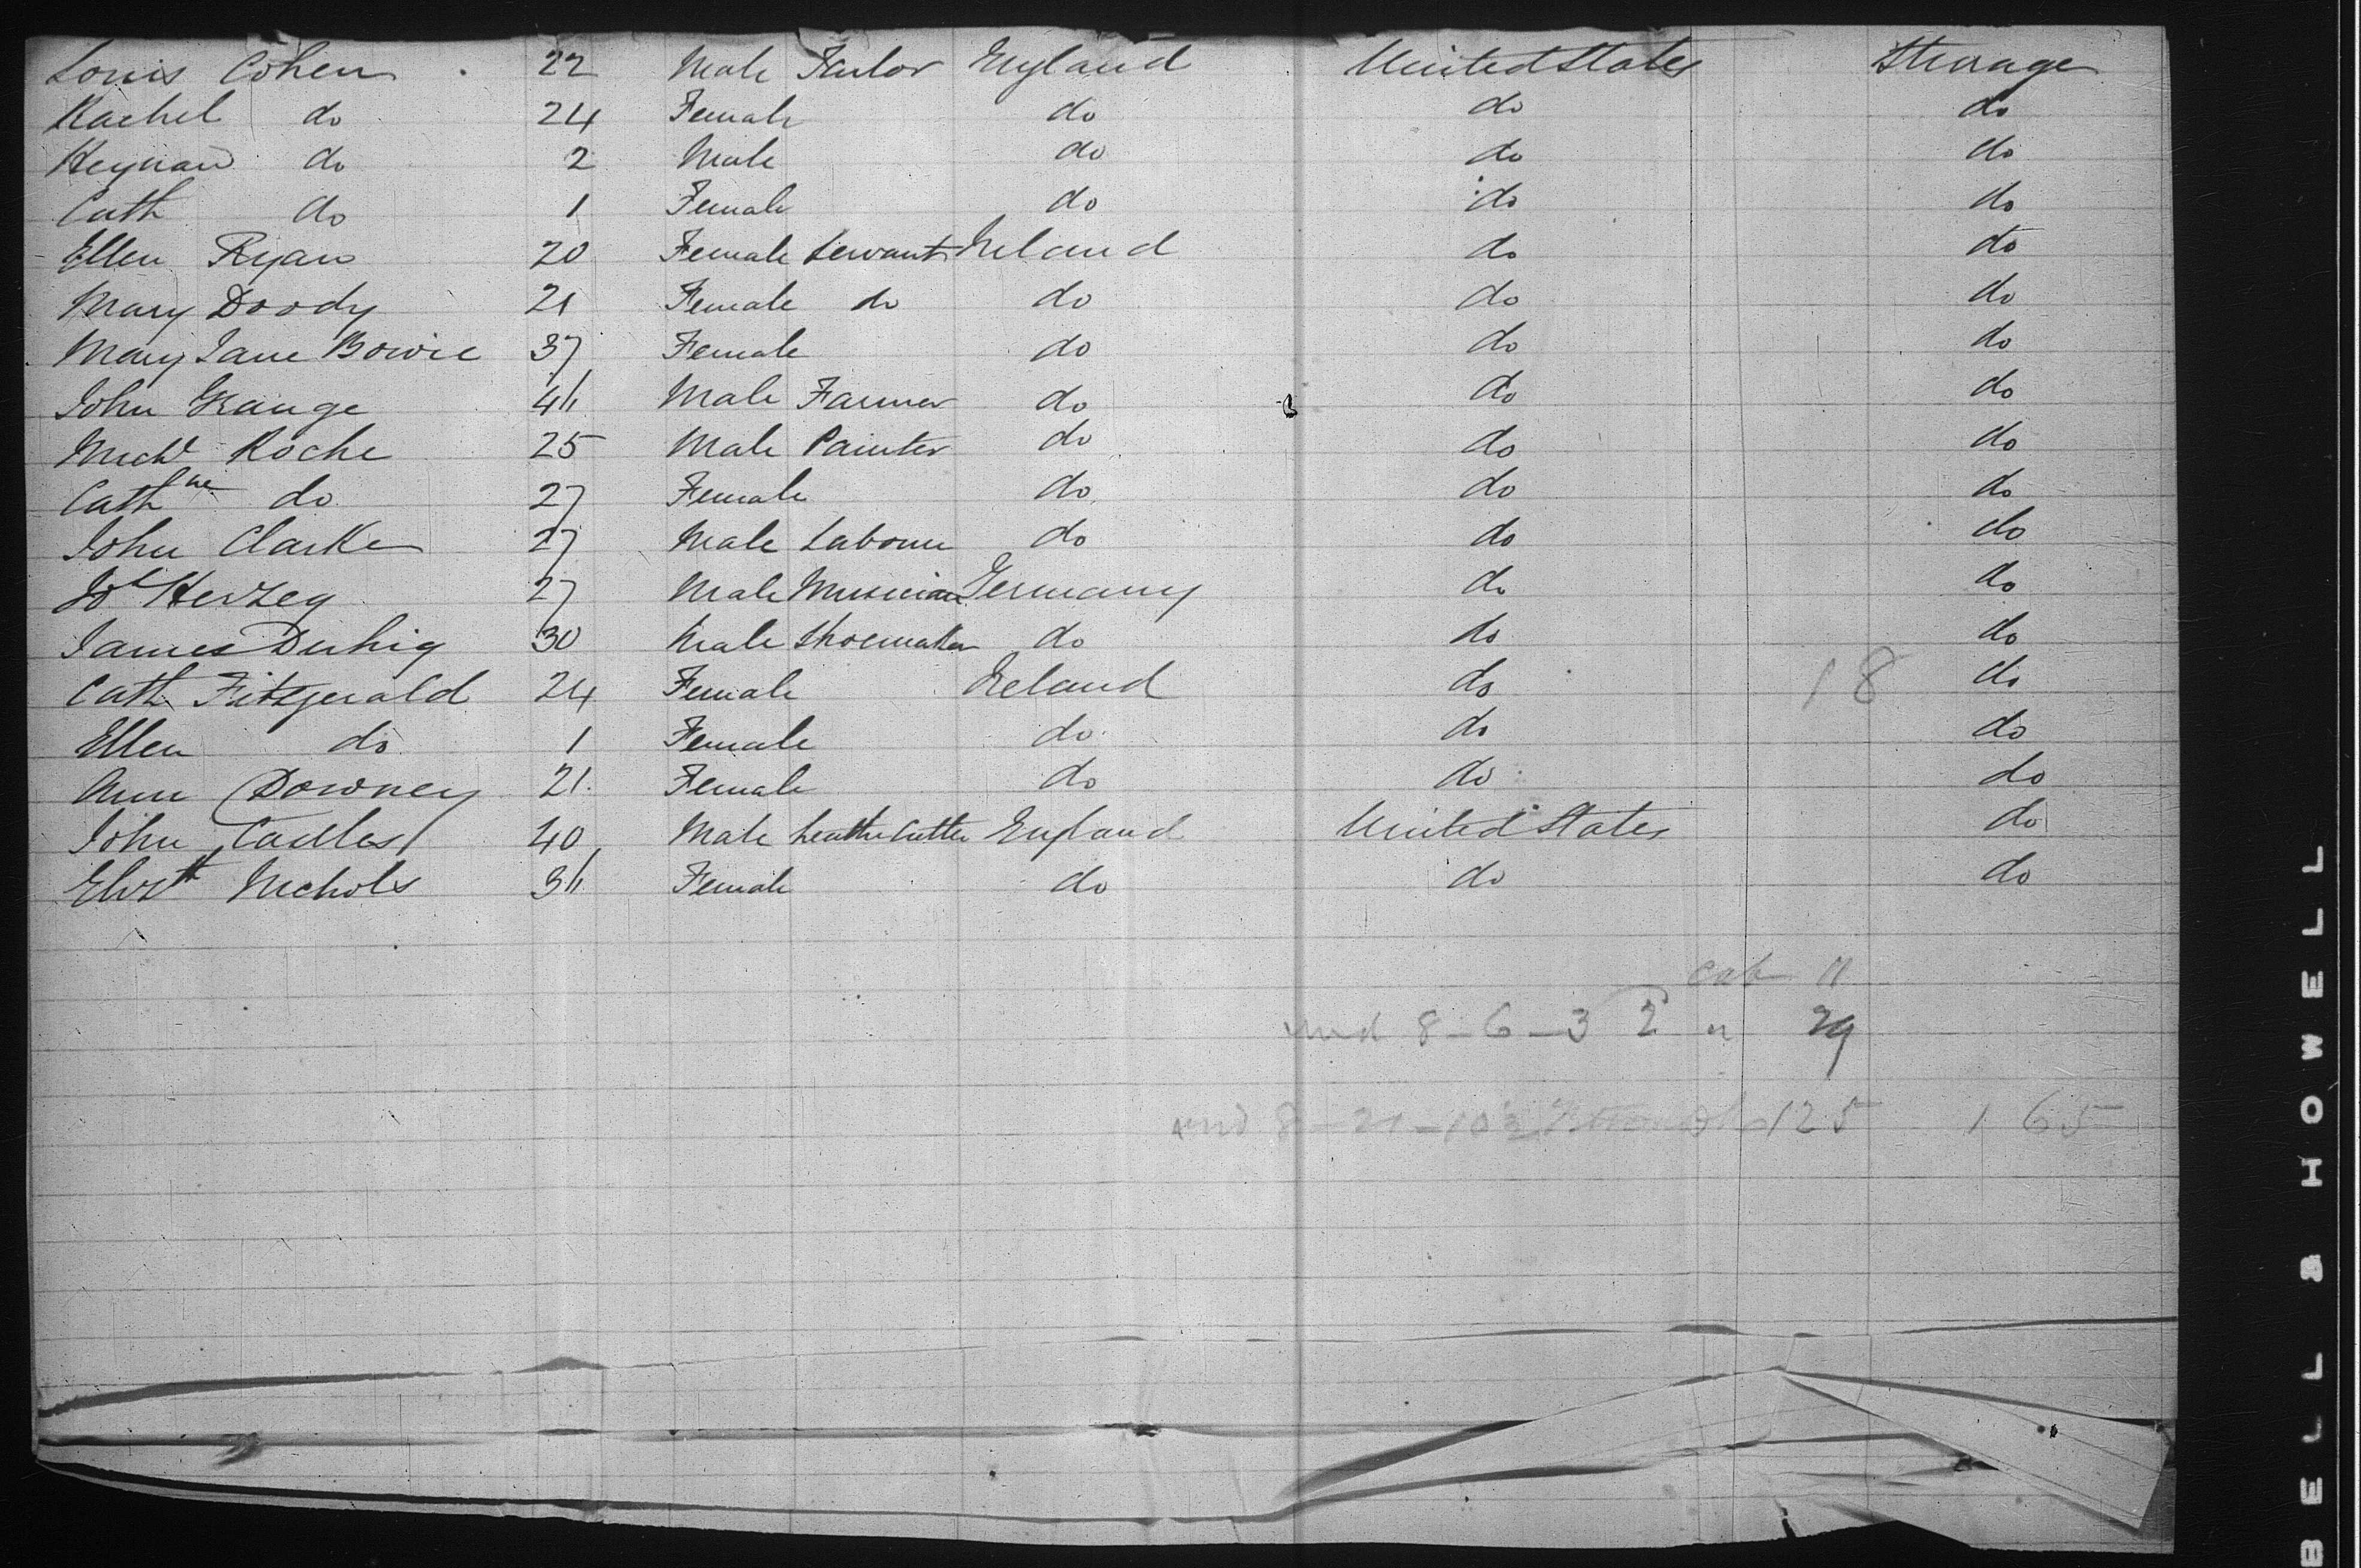 Louis Cohen 22 Male Tailor England United States Steerage
Rachel do 24 Female do do do
Heyman do 2 Male do do do
Cath do 1 Female do do do
Ellen Ryan 20 Female Servant Ireland do do
Mary Doody 21 Female do do do do
Mary Jane Bowie 37 Female do do do
John Grange 44 Male Farmer do do do
Michl Roche 25 Male Painter do do do
Cathne do 27 Female do do do
John Clarke 27 Male Labourer do do do
Herzeg 27 Male Musician Germany do do
James Duhig 30 Male Shoemaker do do do
Cath Fitzgerald 24 Female Ireland do 18 do
Ellen do 1 Female do do do
Ann Downey 21 Female do do do
John 40 Male Leather Cutter England United States do
Elizth Nichols 34 Female do do do
Cab 11
und 8-6-3 2 " 29
und 8-21-10 125 165
BELL & HOWELL